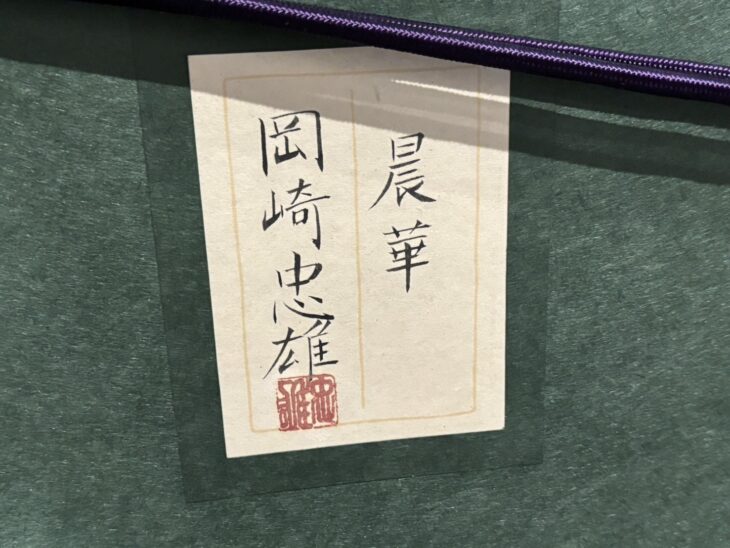 晨華
岡崎忠雄
忠雄